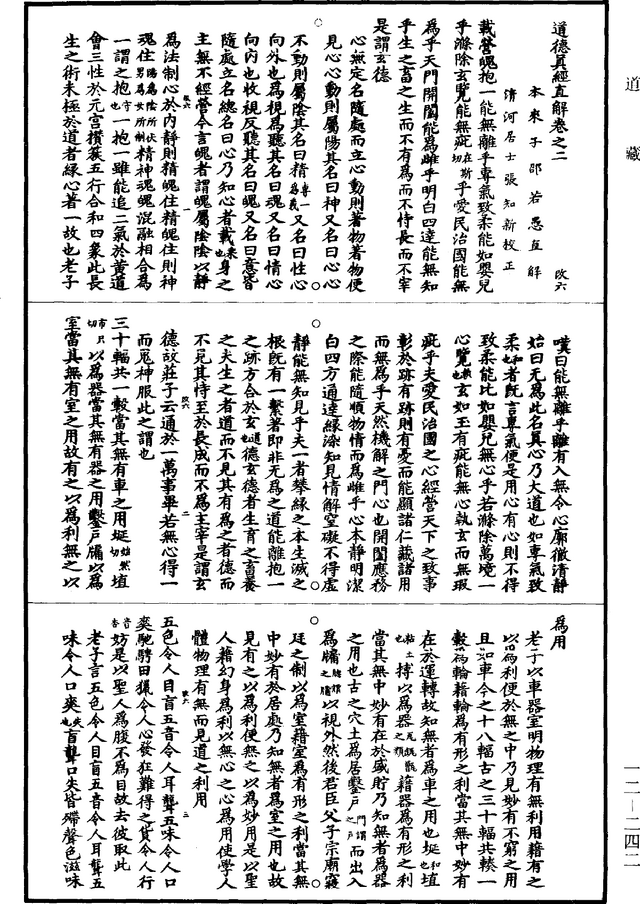 道藏
道德真經直解卷之二　改六
本來子邵若愚直解
清河居士張知新校正
載營魄抱一能無離乎專氣致柔能如嬰兒
乎滌除玄覽能無疵乎愛民治國能無
為乎天門開闔能為雌乎明白四達能無知
乎生之畜之生而不有為而不恃長而不宰
是謂玄德
心無定名隨處而立心動則著物著物便
見心心動則屬陽其名曰神又名曰心心
不動則屬陰其名曰精又名曰性心
向外也為視為聽其名曰魂又名曰情心
向內也收視反聽其名曰魄又名曰意皆
隨處立名總名曰心乃知心者載身之
主無不經營今言魄者謂魄屬陰陰以靜
為法制心於內靜則精魄住精魄住則神
魂住精神魂魄混融相合為
一謂之抱一抱一雖能追二氣於黃道
會三性於元宮攢蔟五行合和四象此長
生之術未極於道者緣心著一故也老子
嘆曰能無離乎離有入無令心廓徹清靜
始曰无為此名真心乃大道也如專氣致
柔者既言專氣便是用心有心則不得
致柔能比如嬰兒無心乎若滌除萬境一
心覽玄如玉有疵能無心執玄而無瑕
疵乎夫愛民治國之心經營天下之致事
彰於跡有跡則有憂而能顯諸仁藏諸用
而無為乎天然機解之門心也開闔應務
之際能隨順物情而為雌乎心本靜明潔
白四方通達緣染知見情解窒礙不得虛
靜能無知見乎夫一者攀緣之本生滅之
根既有一繫著即非无為之道能離抱一
之跡方合於玄德玄德者生育之畜養
之夫生之者道而不見其有為之者德而
不見其恃至於長成而不為主宰是謂玄
德故莊子云通於一萬事畢若無心得一
而鬼神服此之謂也
三十輻共一轂當其無有車之用埏埴
以為器當其無有器之用鑿戶牖以為
室當其無有室之用故有之以為利無之以
為用
老子以車器室明物理有無利用藉有之
以為利便於無之中乃見妙有不窮之用
且如車今之十八輻古之三十輻共輳一
轂為輪藉輪為有形之利當其無中妙有
在於運轉故知無者為車之用也埏埴
搏以為器藉器為有形之利
當其無中妙有在於盛貯乃知無者為器
之用也古之穴土為居鑿戶而出入
為牖以視外然後君臣父子宗廟寢
廷之制以為室藉室為有形之利當其無
中妙有於居處乃知無者為室之用也故
見有之以為利便無之以為妙用是以聖
人藉幻身為利以無心之心為用使學人
體物理有無而見道之利用
五色令人目盲五音令人耳聾五味令人口
爽馳騁田獵令人心發狂難得之貨令人行
妨是以聖人為腹不為目故去彼取此
老子言五色令人目盲五音令人耳聾五
味令人口爽盲聾口失皆殢聲色滋味
一二—二四二